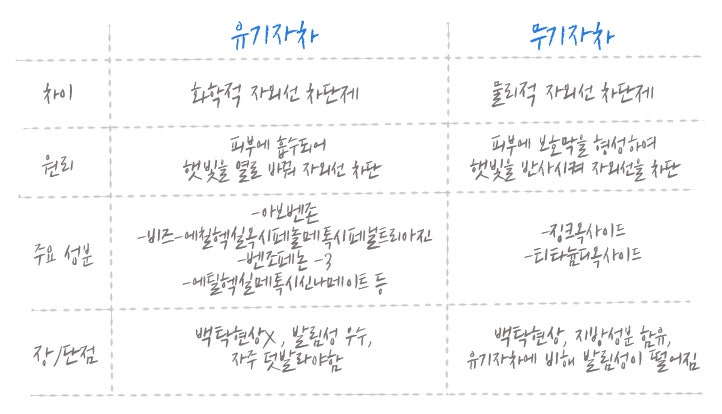 유기자차
무기자차
차이
화학적 자외선 차단제
물리적 자외선 차단제
원리
피부에 흡수되어
햇빛을 열로 바꿔 자외선 차단
피부에 보호막을 형성하여
햇빛을 반사시켜 자외선을 차단
주요 성분
-아보벤존
-비즈-에칠헥실옥시페놀메톡시페닐트리아진
-벤조페논 -3
-에틸헥실메톡시신나메이트 등
-징크옥사이드
-티타늄디옥사이드
장/단점
백탁현상X, 발림성 우수,
자주 덧발라야함
백탁현상, 지방성분 함유,
유기자차에 비해 발림성이 떨어짐